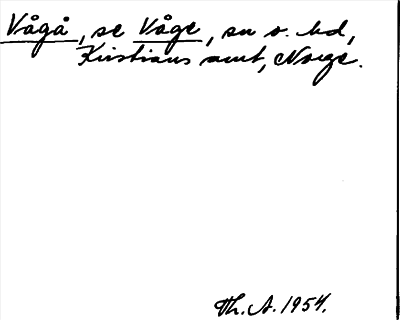 Vågå, se Våge, sn o. hd,
Kristians amt, Norge.
Th. A. 1954.